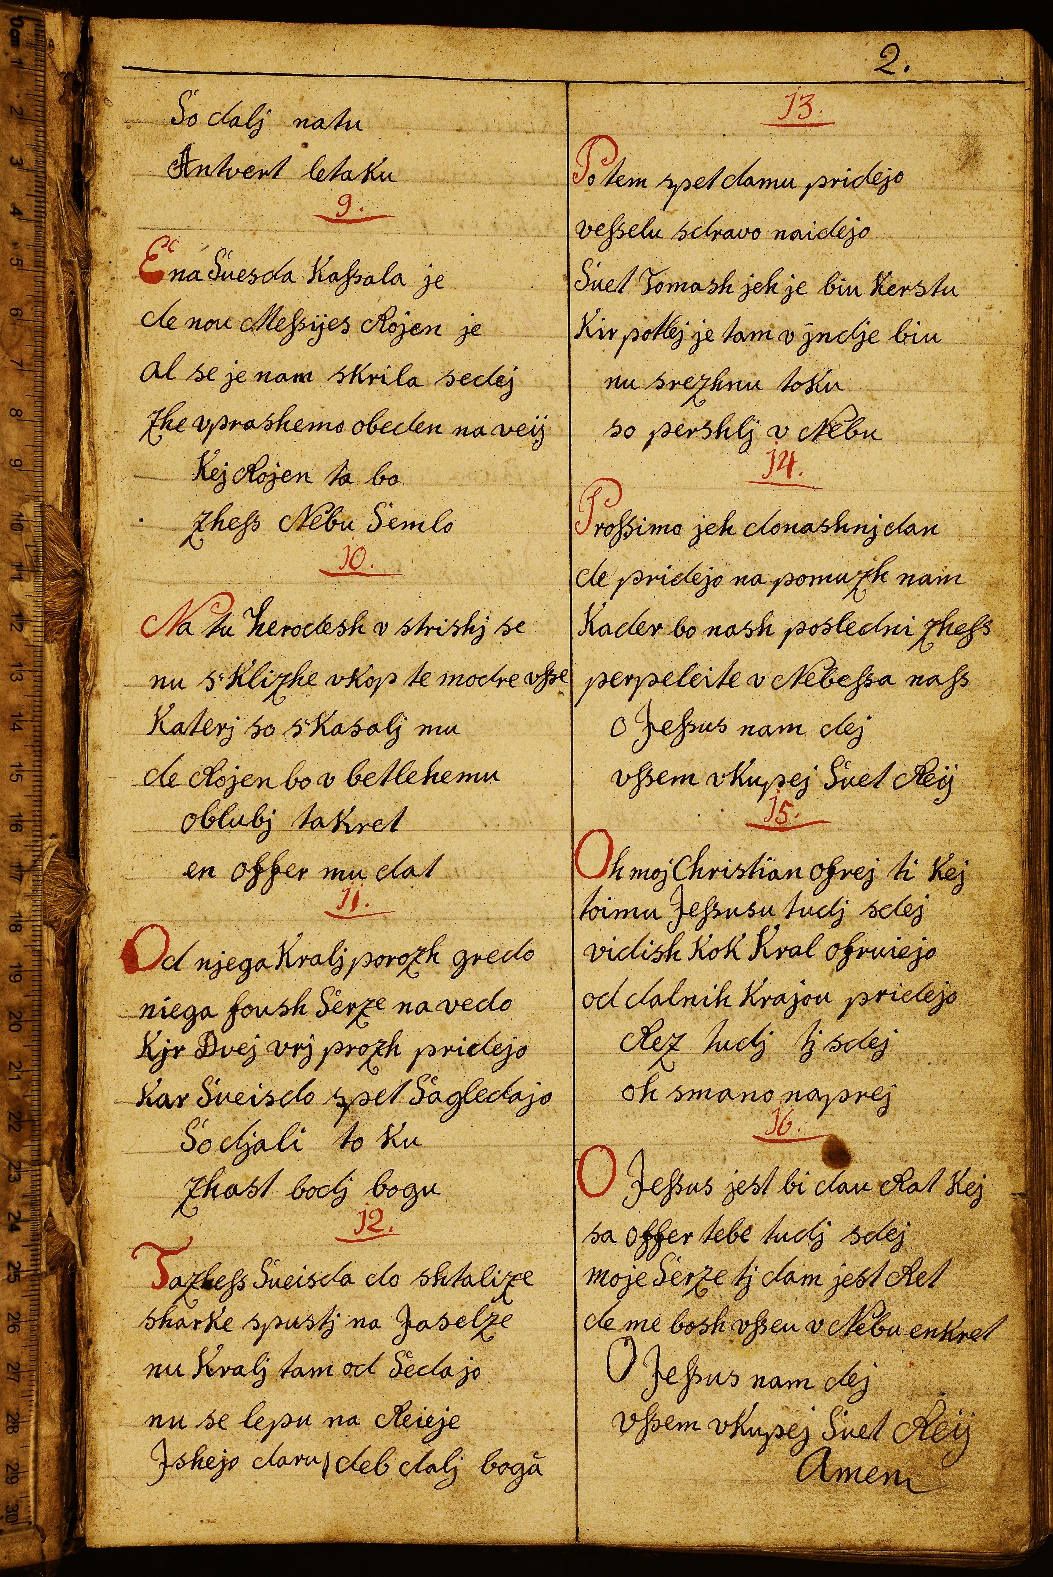 2.
So dalj natu
Antvert letaku
9.
Ena Suesda Kaſsala je
de nou Meſsijes Rojen je
al se je nam skrila sedej
zhe vprashemo obeden na veij
Kej Rojen ta bo
zheſs Nebu Semlo
10.
Na tu herodesh v strishj se
nu s'Klizhe vkop te modre vſse
Katerj so s'Kasalj mu
de Rojen bo v betlehemu
oblubj taKret
en offer mu dat
11.
Od njega Kralj porozh gredo
niega foush Serze na vedo
Kjr Dvej vrj prozh pridejo
Kar Sueisdo spet Sagledajo
So djali to Ku
zhast bodj bogu
12.
Ta zheſs Sueisda do shtalize
sharke spustj na Jaselze
nu Kralj tam od Sedajo
nu se lepu na Reieje
Jshejo daru, deb dalj bogā
13.
Potem spet damu pridejo
veſselu sdravo naidejo
Suet Tomash jeh je biu Kerstu
Kir potlej je tam v jndje biu
nu srezhnu toKu
so pershlj v Nebu
14.
Proſsimo jeh donashnj dan
de pridejo na pomuzh nam
Kader bo nash posledni zheſs
perpeleite v Nebeſsa naſs
O Jeſsus nam dej
vſsem vKupej Suet Reij
15.
Oh moj Christian ofrej ti Kej
toimu Jeſsusu tudj sdej
vidish KoK Kral ofruiejo
od dalnih Krajou pridejo
Rez tudj tj sdej
oh smano naprej
16.
O Jeſsus jest bi dau Rat Kej
sa offer tebe tudj sdej
moje Serze tj dam jest Ret
de me bosh vſseu v Nebu enKret
O Jeſsus nam dej
vſsem vKupej Suet Reij
Amen